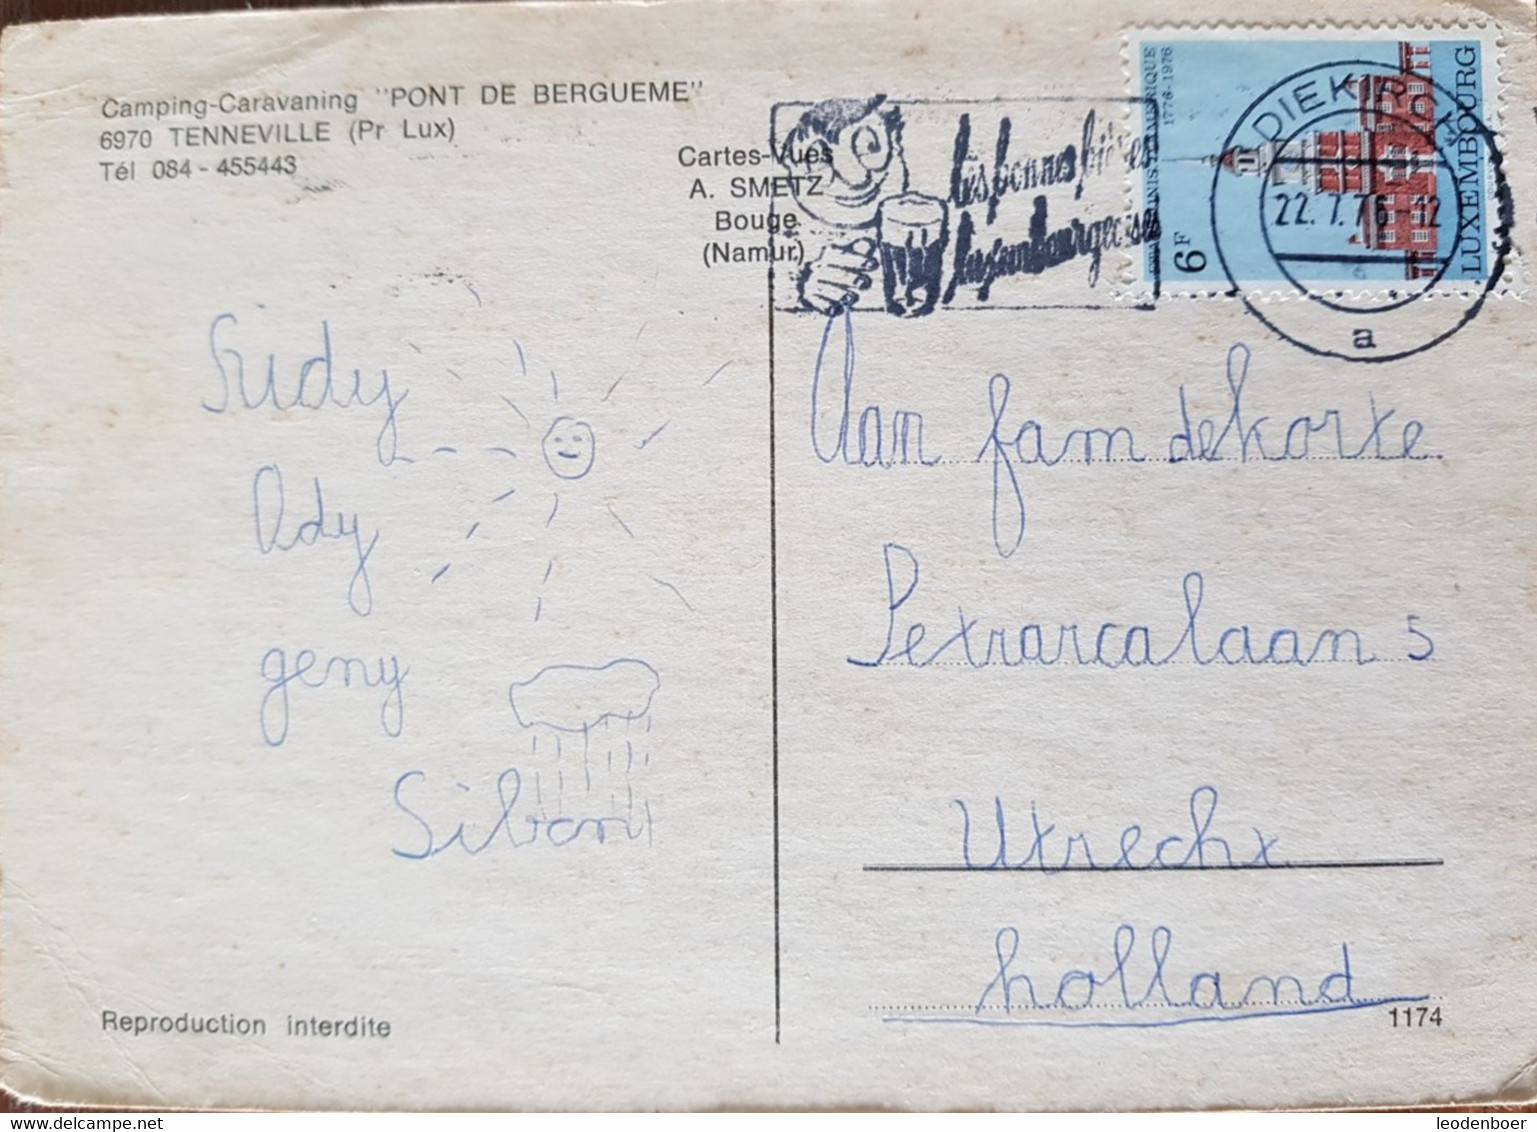 Camping-Caravaning "PONT DE BERGUEME"
6970 TENNEVILLE (Pr Lux)
Tél 084 - 455443
Cartes-Vues
A. SMETZ
Bouge
(Namur)
les bonnes bières
luxembourgeoises
1776-1976
6F
LUXEMBOURG
DIEKIRCH
22.7.76-12
a
Rudy
Ady
geny
Aan fam de Korte
Petrarcalaan 5
Utrecht
holland
Reproduction interdite
1174
leodenboer